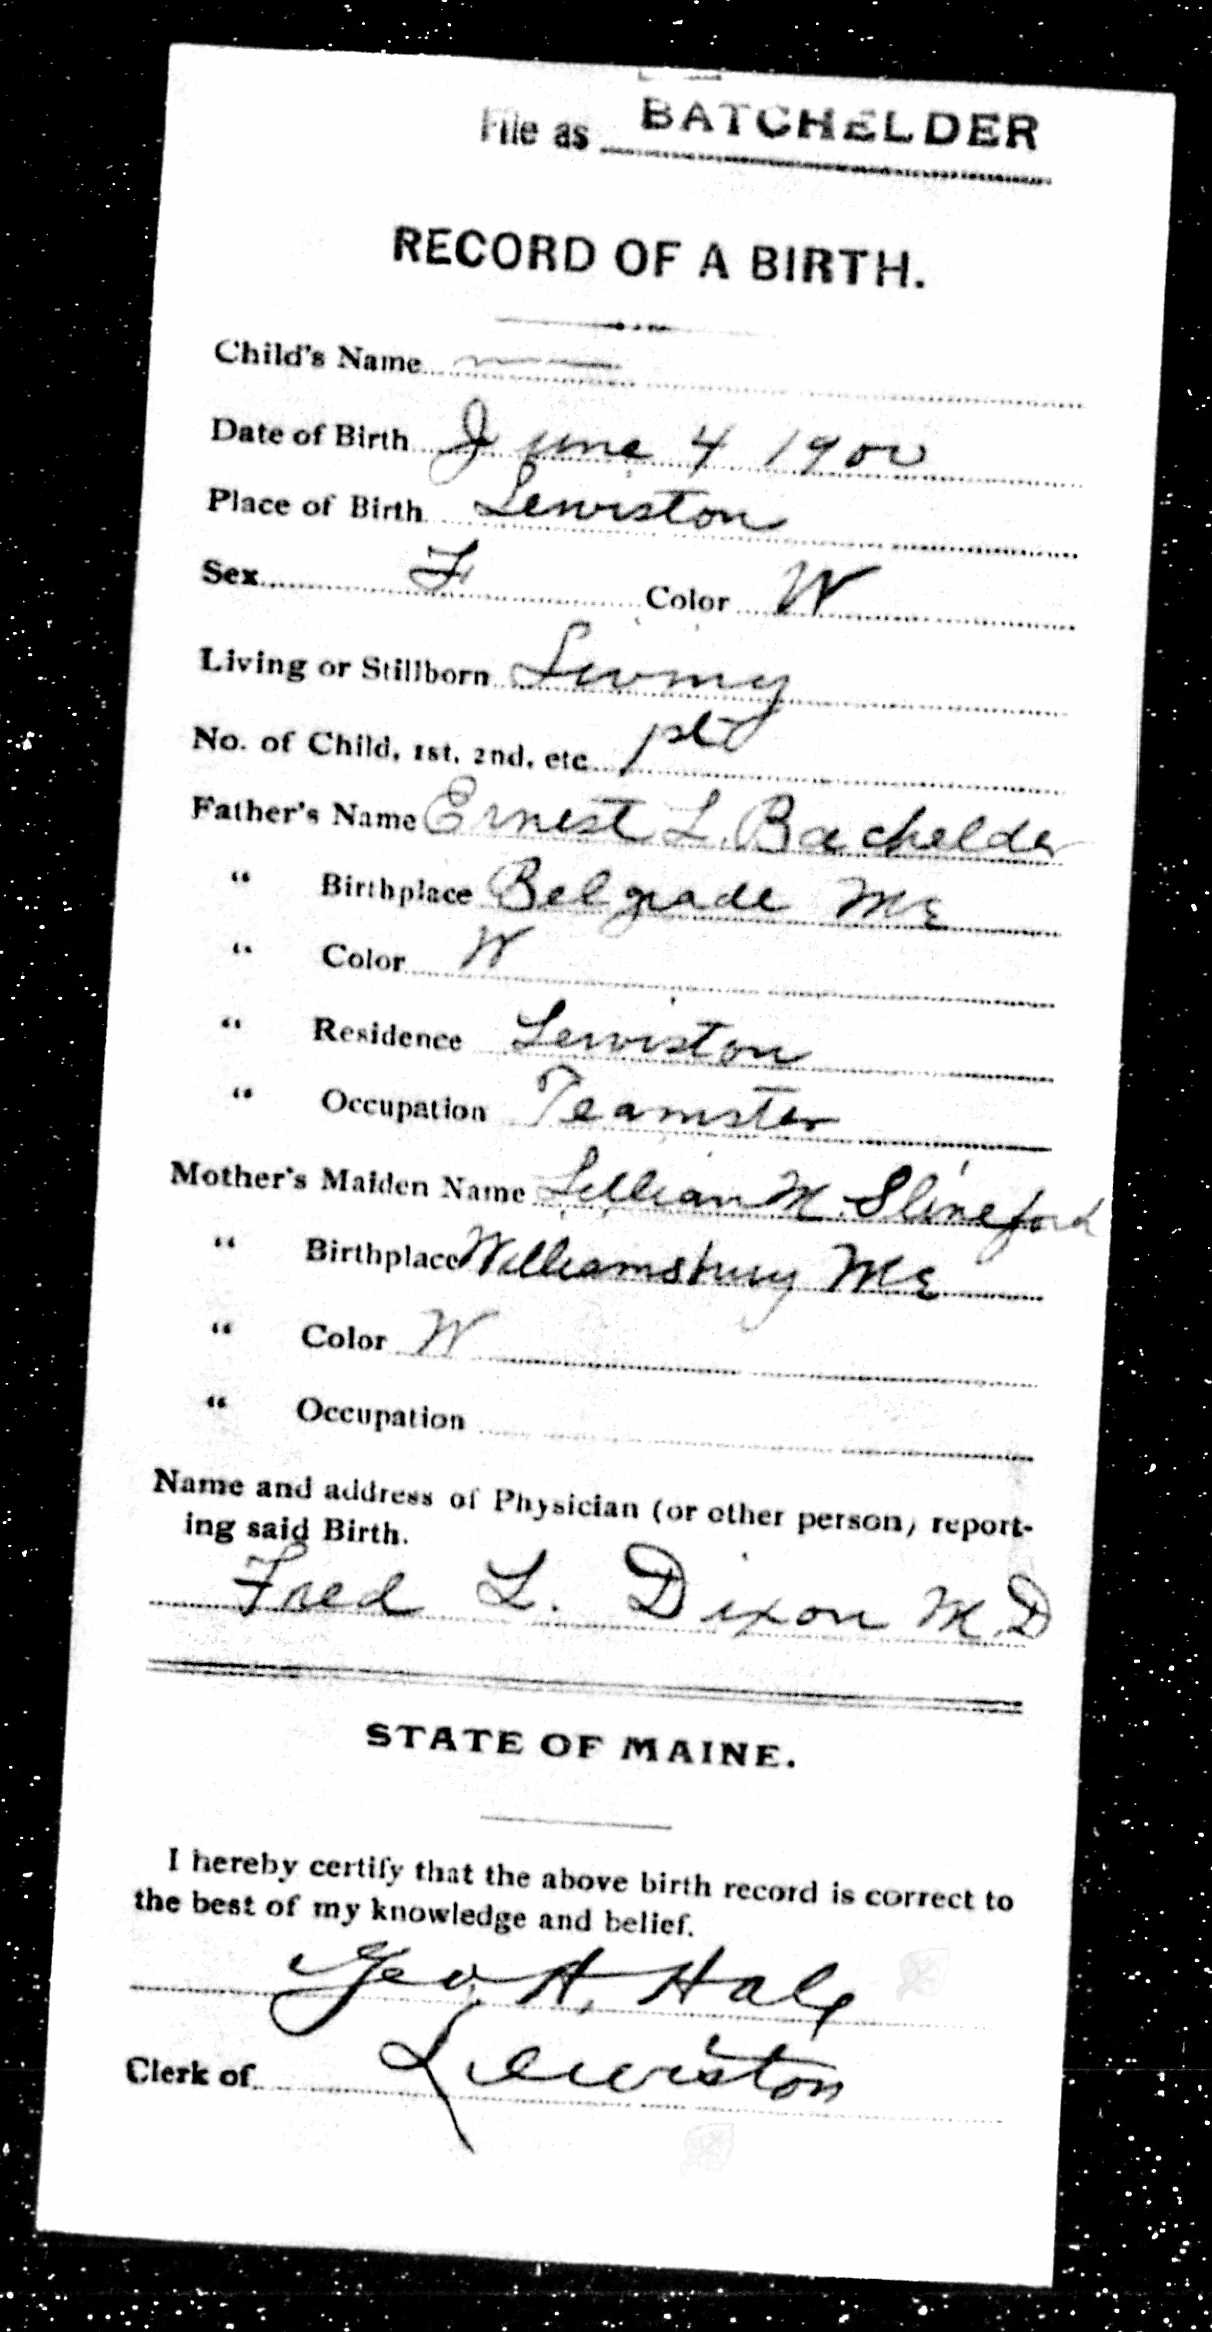 File as BATCHELDER
RECORD OF A BIRTH.
Child's Name
Date of Birth June 4 1900
Place of Birth Lewiston
Sex F Color W
Living or Stillborn Living
No. of Child, 1st, 2nd, etc. 1st
Father's Name Ernest L. Bachelder
" Birthplace Belgrade Me
" Color W
" Residence Lewiston
" Occupation Teamster
Mother's Maiden Name Lillian M. Slineford
" Birthplace Williamsburg Me
" Color W
" Occupation
Name and address of Physician (or other person) report-
ing said Birth.
Fred L. Dixon M.D
STATE OF MAINE.
I hereby certify that the above birth record is correct to
the best of my knowledge and belief.
Geo. H. Hale
Clerk of Lewiston